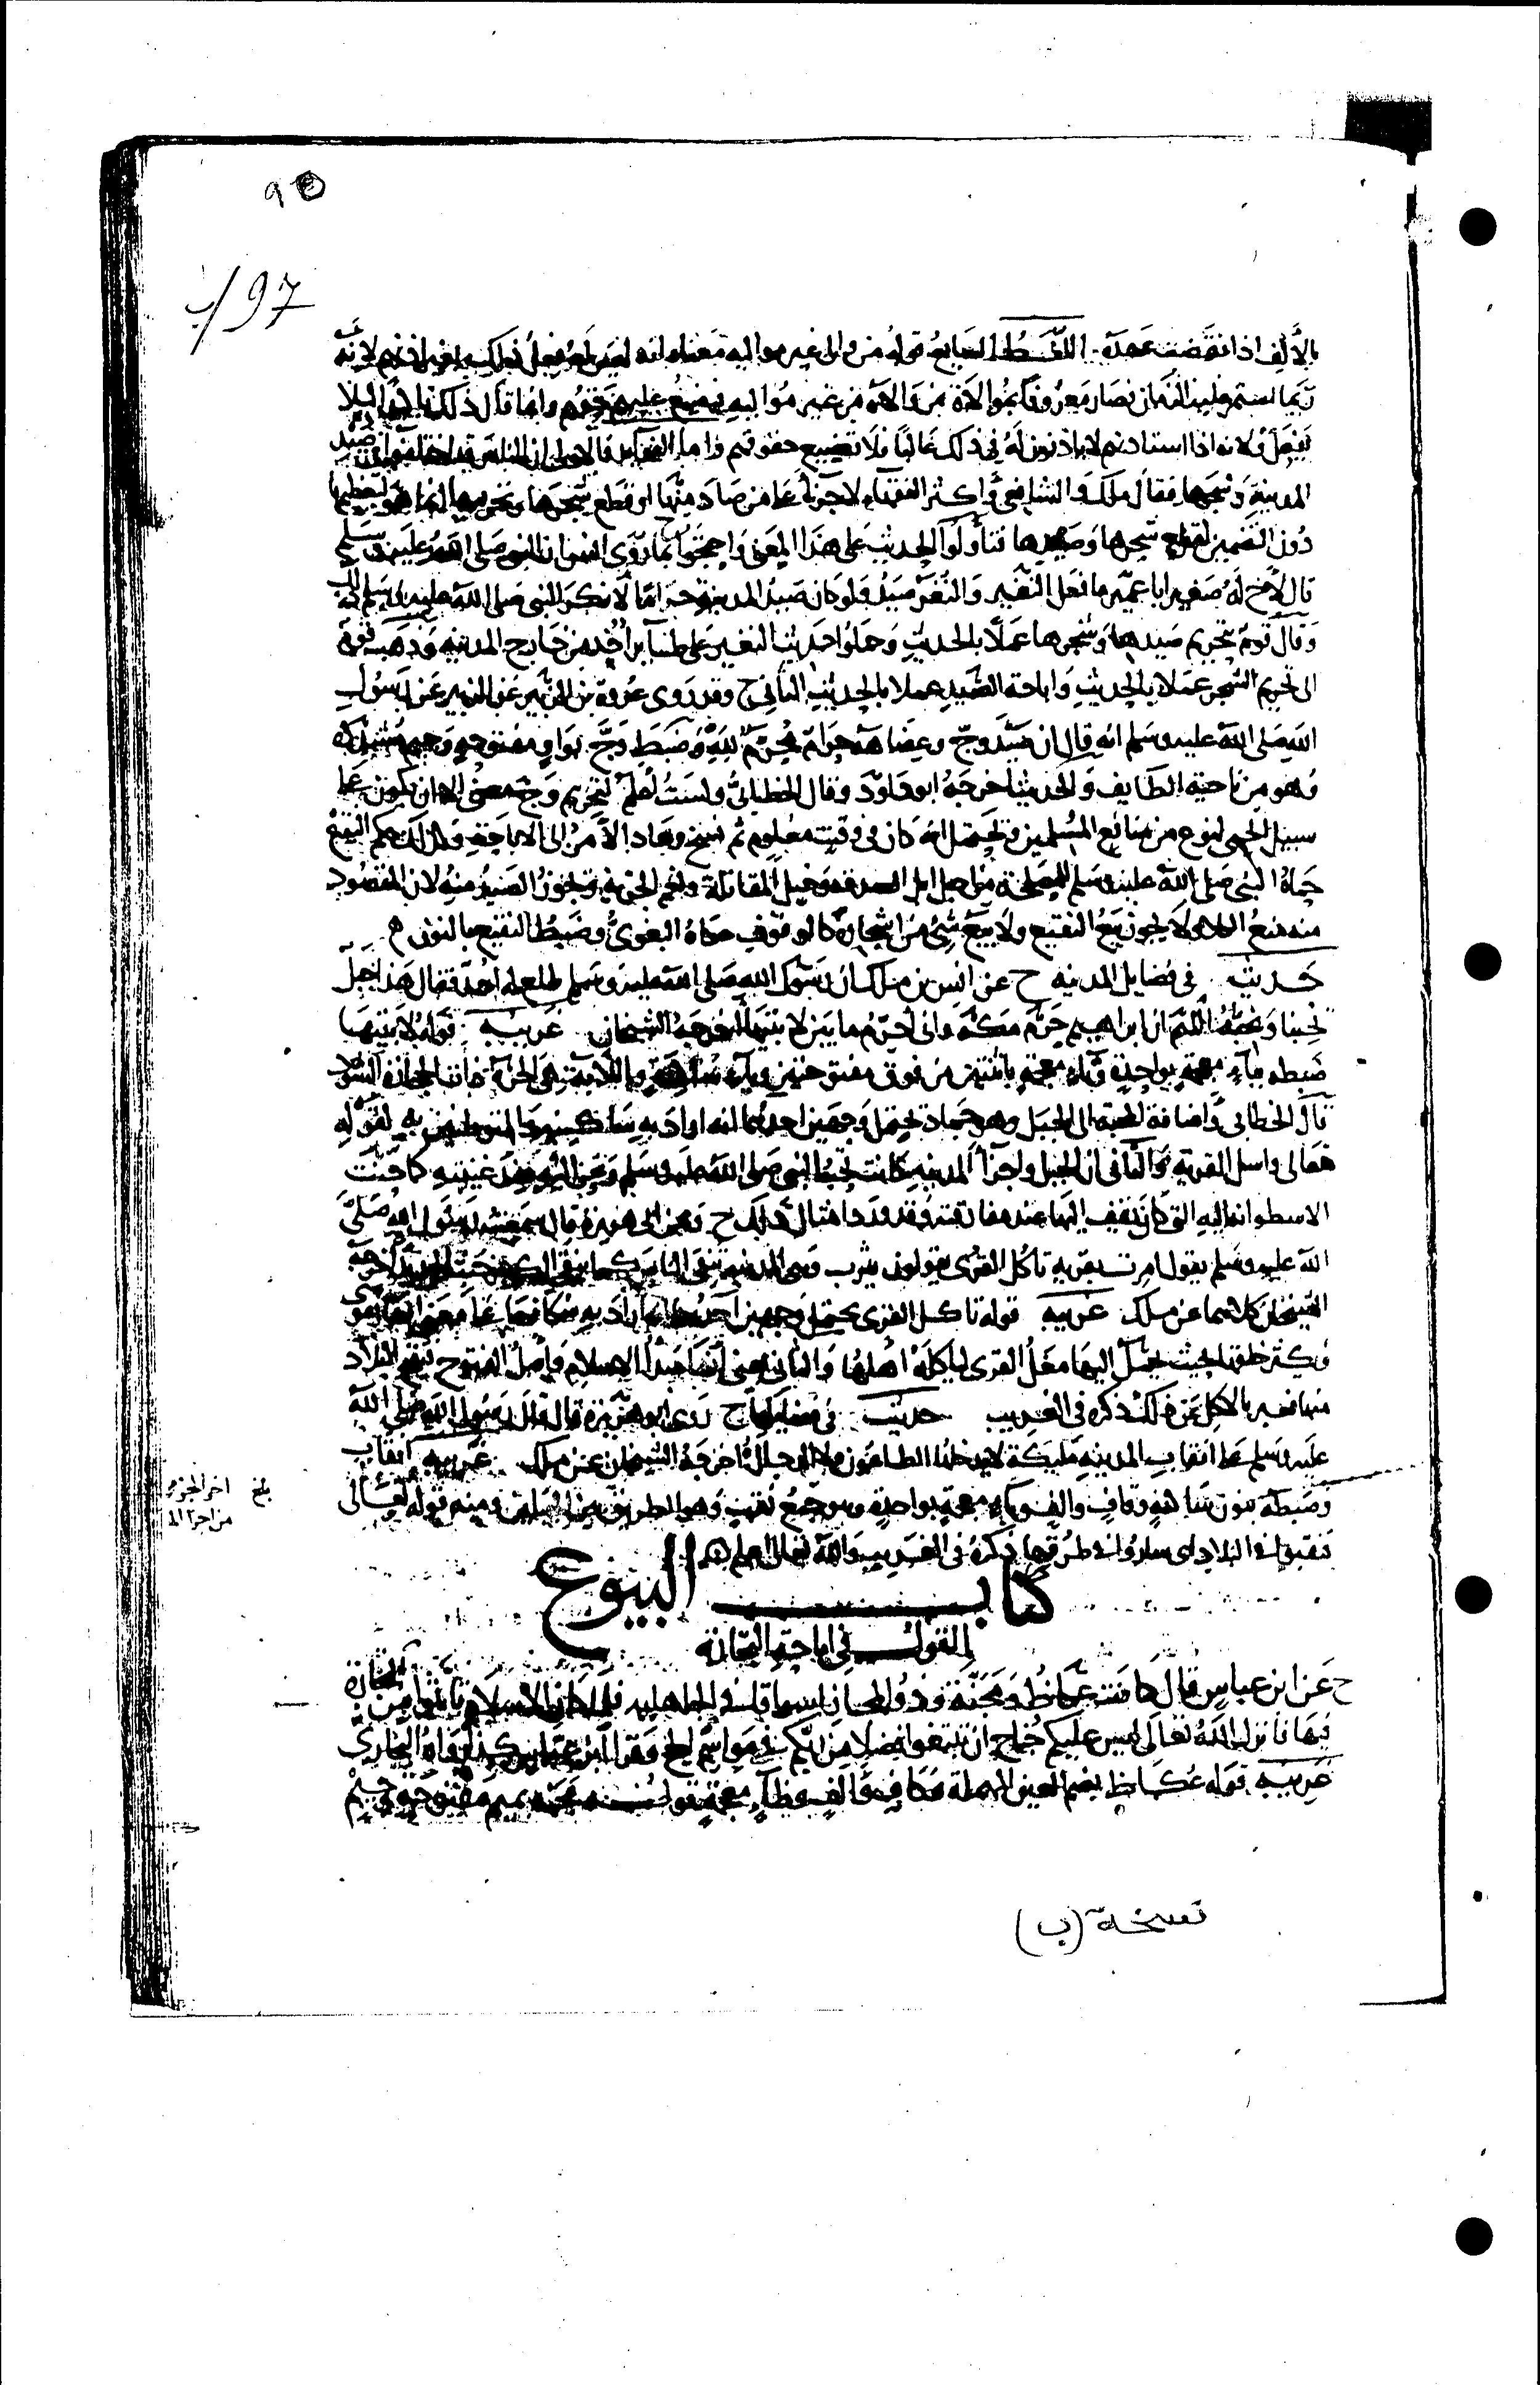 90
97/ب
بالألف اذا نقضت عهده اللفظ السابع قوله من والى غير مواليه معناه انه ليس له فعل ذلك بغير اذنهم لانه
ربما استمر عليه الزمان فصار معروفا بموالاة من والاه من غير مواليه فيضيع عليهم حقهم وانما قال ذلك لئلا
يفعل ولانه اذا استاذنهم لا ياذنون له في ذلك غالبا فلا تضييع حقوقهم واما الفقه فالاولى ان الناس قد اختلفوا في صيد
المدينة وشجرها فقال ملك والشافعي واكثر الفقهاء لا جزاء على من صاد منها او قطع شجرها وتحريمها انما هو تعظيمها
دون التضمين لقطع شجرها وصيدها فتأولوا الحديث على هذا المعنى واحتجوا بما روى انس ان النبي صلى الله عليه وسلم
قال لأخ له صغير ابا عمير ما فعل النغير والنغر صيد ولو كان صيد المدينة حراما لأنكر النبي صلى الله عليه وسلم
وقال قوم بتحريم صيدها وشجرها عملا بالحديث وحملوا حديث النغير على طائر أخذ من خارج المدينه وذهب قوم
الى تحريم الشجر عملا بالحديث واباحة الصيد عملا بالحديث الثاني ح وقد روى عروة بن الزبير عن الزبير عن رسول
الله صلى الله عليه وسلم انه قال ان صيد وج وعضاهه حرام محرم لله وضبط وج بواو مفتوحة وجيم مشددة
وهو من ناحية الطايف والحديث اخرجه ابو داود وقال الخطابي ولست أعلم لتحريم وج معنى الا ان يكون على
سبيل الحمى لنوع من منافع المسلمين ويحتمل انه كان في وقت معلوم ثم نسخ وعاد الأمر الى الاباحة وكذلك حكم النقيع
حماه النبي صلى الله عليه وسلم لمصلحة من اجل ابل الصدقة وخيل المقاتلة ونعم الجزية ويجوز الصيد منه لان المقصود
منه منع الكلا ولا يجوز بيع النقيع ولا بيع شيء من اشجاره كالموقوف حكاه البغوي وضبط النقيع بالنون ح
حديث في فضايل المدينه ح عن انس بن ملك ان رسول الله صلى الله عليه وسلم طلع له احد فقال هذا جبل
يحبنا ونحبه اللهم ان ابراهيم حرم مكة واني احرم ما بين لابتيها اخرجه الشيخان غريبه قوله لابتيها
ضبطه بباء معجمة بواحدة وتاء معجمة باثنتين من فوق مفتوحتين وياء ساكنة واللابة هي الحرة ذات الحجارة السود
قال الخطابي واضافة المحبة الى الجبل وهو جماد يحتمل وجهين احدهما انه اراد به ساكنيه والمتوطنين به لقوله
تعالى واسل القرية والثاني ان الجبل واجزاء المدينه كانت تحب النبي صلى الله عليه وسلم وتحن اليه عند غيبته كما حنت
الاسطوانه اليه التي كان يقف اليها عند مفارقته وقد ورد امثال ذلك ح وعن ابي هريرة قال سمعت رسول الله صلى
الله عليه وسلم يقول امرت بقرية تاكل القرى يقولون يثرب وهي المدينه تنفي الناس كما ينفي الكير خبث الحديد اخرجه
الشيخان كلاهما عن ملك غريبه قوله تاكل القرى يحتمل وجهين احدهما اراد به سكانها على معنى انها
وتكثر خلقها بحيث يحمل اليها محل القرى لياكله اهلها والثاني يعني انها مبدأ الاسلام واصل الفتوح تفتح البلاد
منها فعبر بالاكل عن ذلك ذكره في الغريب حديث في فضيلتها ح روى ابو هريرة قال قال رسول الله صلى الله
عليه وسلم على انقاب المدينه مليكة لا يدخلها الطاعون ولا الدجال اخرجه الشيخان عن ملك غريبه انقاب
وضبطه بنون ساكنة وقاف والف وباء معجمة بواحدة وهو جمع نقب وهو الطريق بين الجبلين ومنه قوله تعالى
فنقبوا في البلاد اي ساروا في طرقها ذكره في الغريب والله تعالى اعلم
كتاب البيوع
القول في اباحة التجارة
ح عن ابن عباس قال كانت عكاظ ومجنة وذو المجاز اسواقا في الجاهلية فلما كان الاسلام تاثموا من التجارة
فيها فانزل الله تعالى ليس عليكم جناح ان تبتغوا فضلا من ربكم في مواسم الحج وقرا ابن عباس كذا رواه البخاري
غريبه قوله عكاظ بضم العين المهملة وكاف والف وظاء معجمة قوله مجنه بميم مفتوحة وجيم
بلغ اخر الجزء
من اجزا
نسخة (ب)